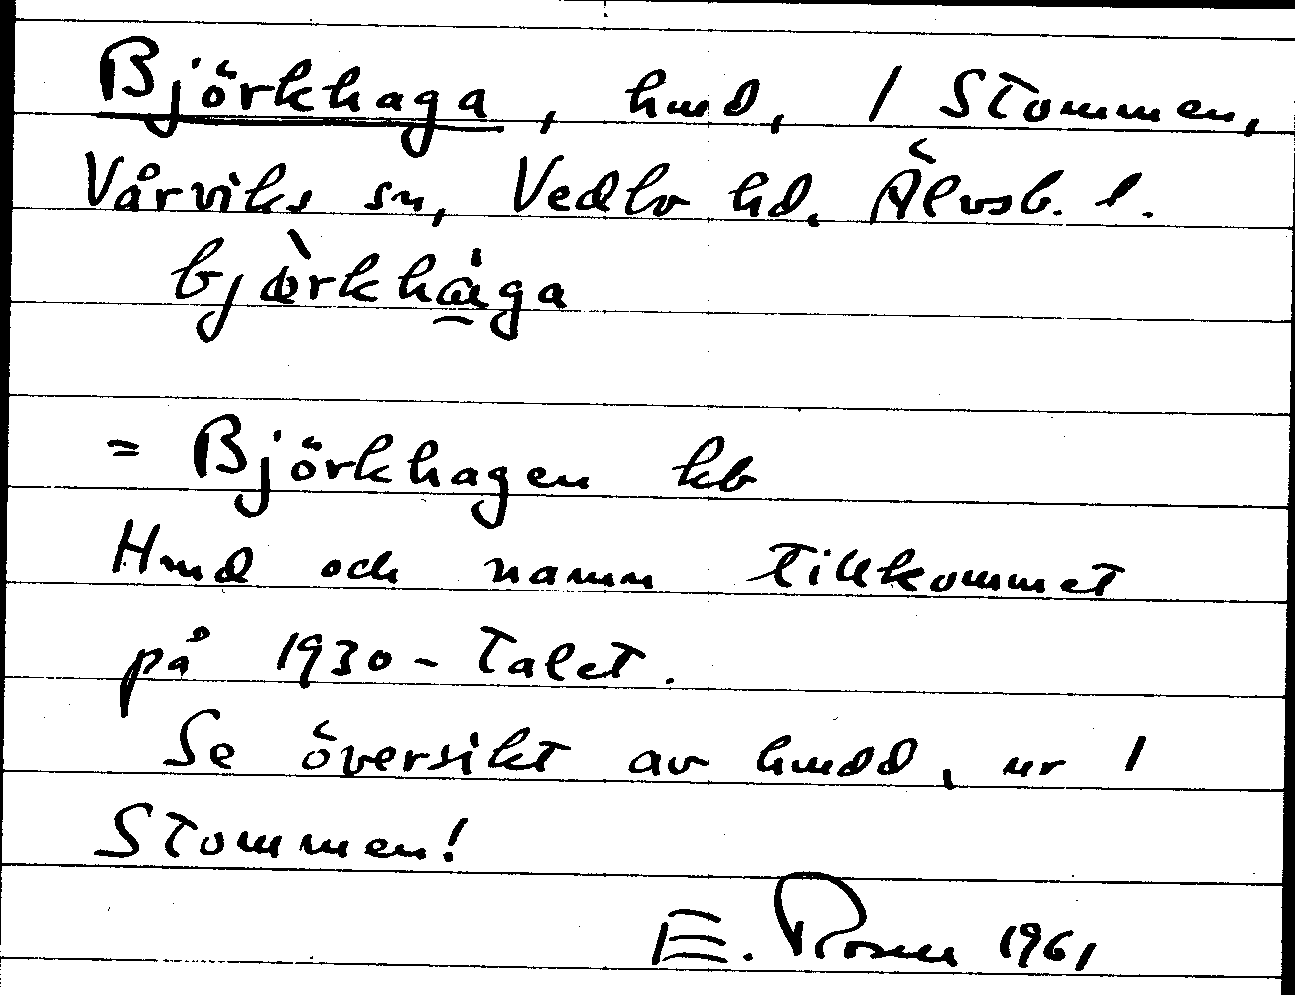 Björkhaga, hmd, 1 Stommen,
Vårviks sn, Vedbo hd. Älvsb. l.
bjœ̀rkhága
= Björkhagen kb
Hmd och namn tillkommet
på 1930-talet.
Se översikt av hmdd, nr 1
Stommen!
E. Rosell 1961